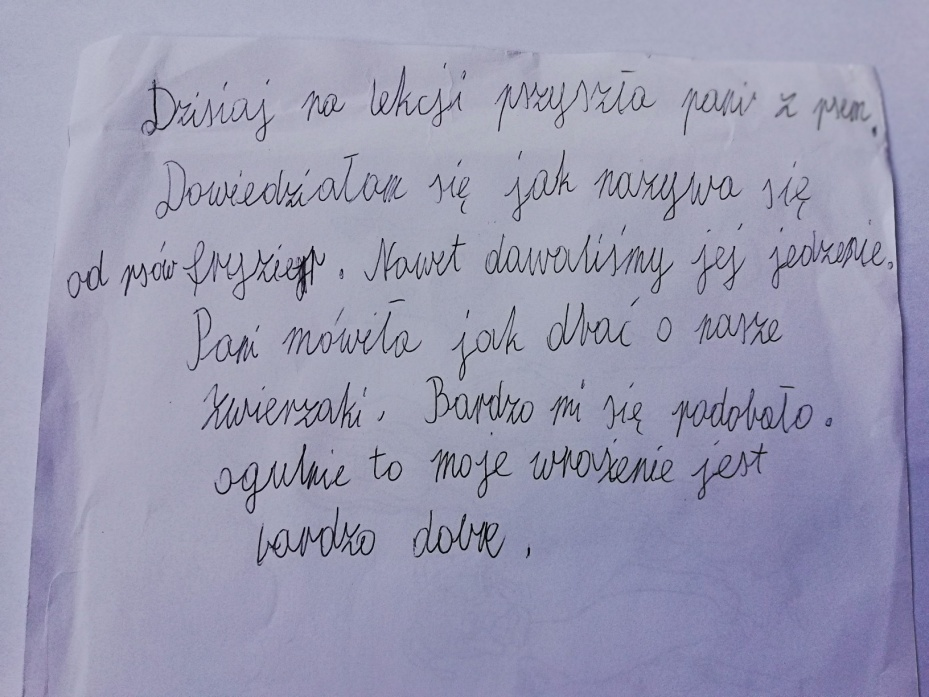 Dzisiaj na lekcji przyszła pani z psem.
Dowiedziałam się jak nazywa się
od psów fryzier. Nawet dawaliśmy jej jedzenie.
Pani mówiła jak dbać o nasze
zwierzaki. Bardzo mi się podobało.
ogulnie to moje wrażenie jest
bardzo dobre.